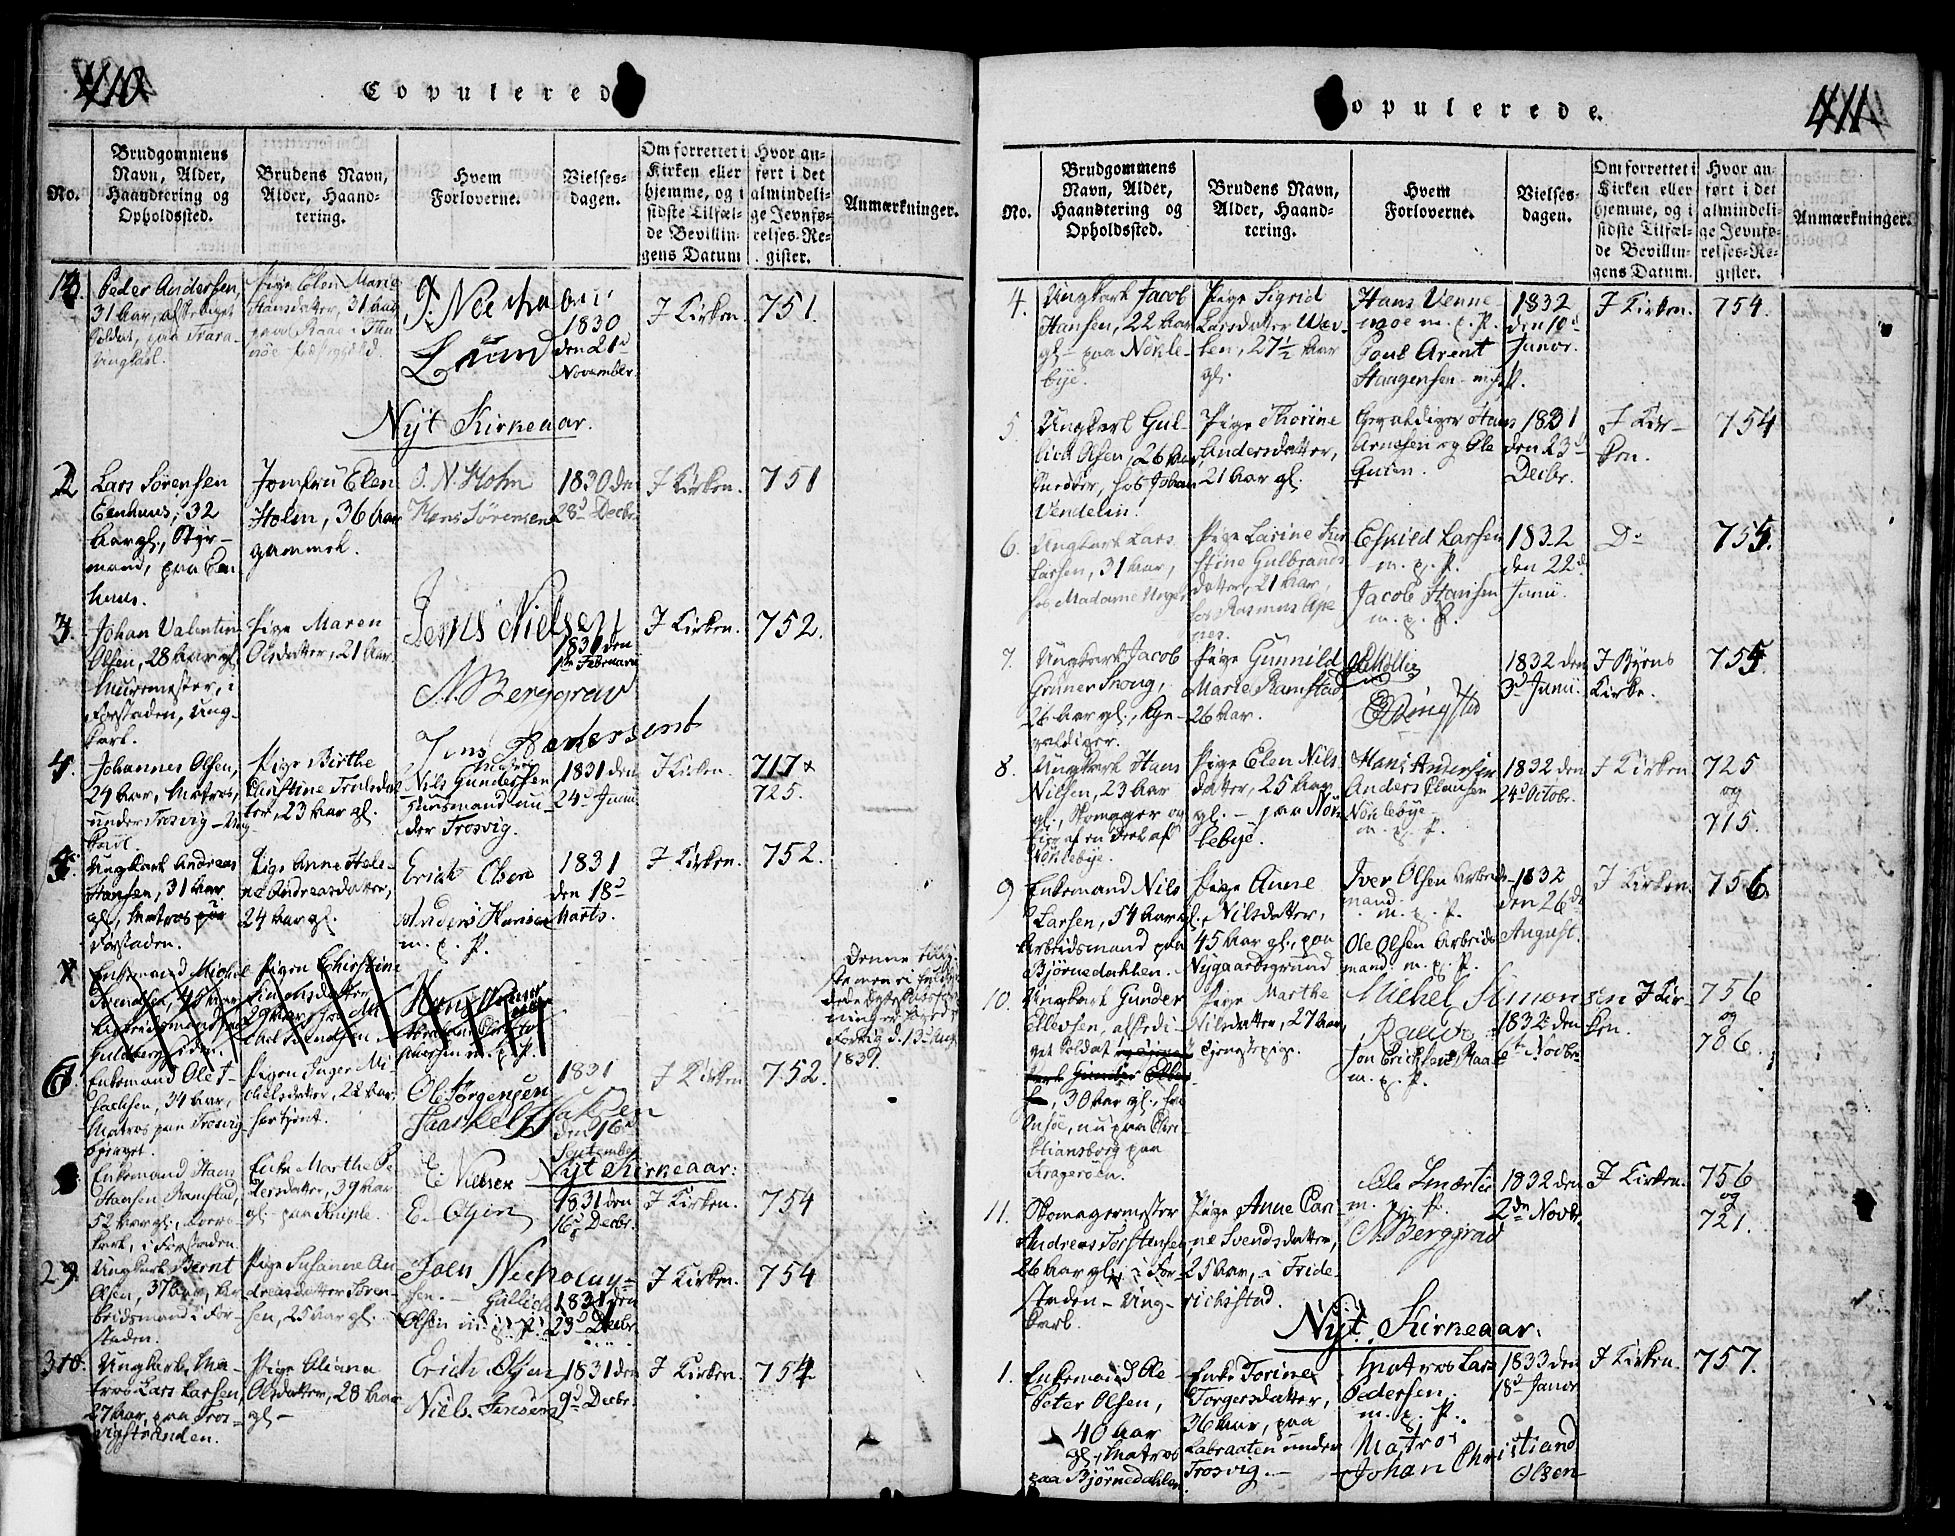 410
Copulerede
No.
Brudgommens Navn, Alder, Haandtering og Opholdssted.
Brudens Navn, Alder, Haandtering.
Hvem Forloverne.
Vielsesdagen.
Om forrettet i Kirken eller hjemme, og i sidste Tilfælde Bevillingens Datum
Hvor anført i det almindelige Jevnførelses-Register.
Anmærkninger.
Peder Andersen,
31 Aar, afskediget
Soldat, paa
Ungkarl.
Pige Elen Marie
Hansdatter, 31 Aar
Lund
1830
den 21d
November.
I Kirken.
751.
Nÿt Kirkeaar.
2
Lars Sörensen
Eenhuus, 32
Aar gl, Styr-
mand, paa Een
huus.
Jomfru Elen
Holm, 36 Aar
gammel.
O. N. Holm
Hans Sörensen
1830 den
28d Decbr
I Kirken.
751
3.
Johan Valentin
Olsen, 28 Aar gl
Muurmester, i
Forstaden, Ung-
karl.
Pige Maren
Olsdatter, 21 Aar.
Jens Nielsen
A. Berggrav
1831 den
Februarii
I Kirken.
752.
Jens Pedersen
4.
Johannes Olsen,
24 Aar, Matros,
under Trosvig - Ung
karl.
Pige Birthe
Christine
23 Aar gl.
Nils Gundersen
Huusmand un-
der Trosvig.
1831 den
24d Junii
I Kirken.
717 x
725.
Ungkarl Andreas
Hansen, 31 Aar
gl, Matros i
Forstaden.
Pige Anne Hele-
ne Andreasdatter,
24 Aar gl.
Erich Olsen
Anders Hansen
m. p. P.
1831
den 18d
Marts.
I Kirken.
752.
Enkemand Michel
Arbeidsmand
Pigen Christine
29 Aar, hos
m. p. P.
Denne
1831.
6
Enkemand Ole I-
sachsen, 34 Aar,
Matros paa Trosvig
bjerget.
Pigen Inger Mi-
chelsdatter, 22 Aar,
Ole Jörgensen
Isaksen
1831
den 16d
September
I Kirken
752.
Nÿt Kirkeaar:
Enkemand Hans
Hansen Ramstad,
52 Aar gl,
i Forstaden
Enke Marthe Pe
dersdatter, 39 Aar
gl - paa Kniple.
E. Nielsen
E. Olsen
1831 den
16d Decbr.
I Kirken.
754
29.
Ungkarl Bernt
Olsen, 37 Aar, Ar
beidsmand i For
staden.
Pige Susanne An
dreasdatter Sören-
sen, 25 Aar gl.
Joen Nicholay-
sen. - Gullich
Olsen m. p. P.
1831 den
23d Decbr
I Kirken.
754
310.
Ungkarl, Ma-
tros Lars Larsen,
27 Aar, paa Tros-
vigstranden.
Pige Eliana
Olsdatter, 28 Aar
gl -
Erich Olsen
Niels Jensen
1831 den
9d Decbr.
I Kirken.
754
411
Copulerede.
No.
Brudgommens Navn, Alder, Haandtering og Opholdssted.
Brudens Navn, Alder, Haandtering.
Hvem Forloverne.
Vielsesdagen.
Om forrettet i Kirken eller hjemme, og i sidste Tilfælde Bevillingens Datum.
Hvor anført i det almindelige Jevnførelses-Register.
Anmærkninger.
4.
Ungkarl Jacob
Hansen, 22 Aar
gl - paa Nökle-
bye.
Pige Sigrid
Larsdatter
27½ Aar
gl.
Hans Venne
moe m. p. P.
Poul Arent
Haagensen m. p. P.
1832
den 10d
Januar.
I Kirken.
754.
5.
Ungkarl Gul-
lich Olsen, 26 Aar,
hos Johan
Vendelin.
Pige Thorine
Andersdatter,
21 Aar gl.
Gevaldiger Hans
Arnesen og Ole
1831
den 23d
Decbr.
I Kir-
ken.
754
6.
Ungkarl Lars
Larsen, 31 Aar,
hos Madame
Pige Larine
Gulbrands
datter, 21 Aar,
hos Rasmus Ape
nes.
Eskild Larsen
m. p. P.
Jacob Hansen
m. p. P.
1832
den 22d
Junii.
Do
755.
7.
Ungkarl Jacob
Grüner Skong,
26 Aar gl, Ge-
valdiger.
Pige Gunnild
Marie Ramstad,
26 Aar.
1832 den
3d Junii.
I Byens
Kirke.
755.
8.
Ungkarl Hans
Nilsen, 23 Aar
gl, Skomager og
Eier af en Deel af
Nöklebye.
Pige Elen Nils
datter, 25 Aar
gl. - paa Nök
lebye.
Hans Andersen
Anders Clausen
Nöklebye
m. p. P.
1832 den
24d Octobr.
I Kirken
725
og
715.
9
Enkemand Nils
Larsen, 54 Aar gl.
Arbeidsmand paa
Björnedahlen.
Pige Anne
Nilsdatter,
45 Aar gl, paa
Nygaardsgrund
Iver Olsen Arbeids
mand.
m. p. P.
Ole Olsen Arbeids
mand. m. p. P.
1832
den 26d
August.
I Kirken
756
10.
Ungkarl Gunder
Ellevsen, afskedi-
get Soldat
30 Aar gl,
nu paa Chri-
stiansborg paa
Kragerøen.
Pige Marthe
Nilsdatter, 27 Aar,
Tjenestepige.
Michel Simonsen
Rauö
Jon Erichsen
m. p. P.
1832 den
6te Novbr.
I Kir-
ken.
756
og
786.
11.
Skomagermester
Andreas Torstensen,
26 Aar gl, i For-
staden - Ung-
karl.
Pige Anne Cari-
ne Svendsdatter,
25 Aar, i Fride-
richsstad.
m. p. P.
A. Berggrav
1832 den
2den Novbr.
I Kirken.
756
og
721.
Nÿt Kirkeaar:
1.
Enkemand Ole
Peter Olsen,
40 Aar
gl, Matros
paa Björnedahlen.
Enke Torine
Torgersdatter,
36 Aar, paa
Labraaten under
Trosvig. -
Matros Lars
Pedersen.
m. p. P.
Matros
Johan Christian
Olsen
1833 den
18d Januar
I Kirken.
757.